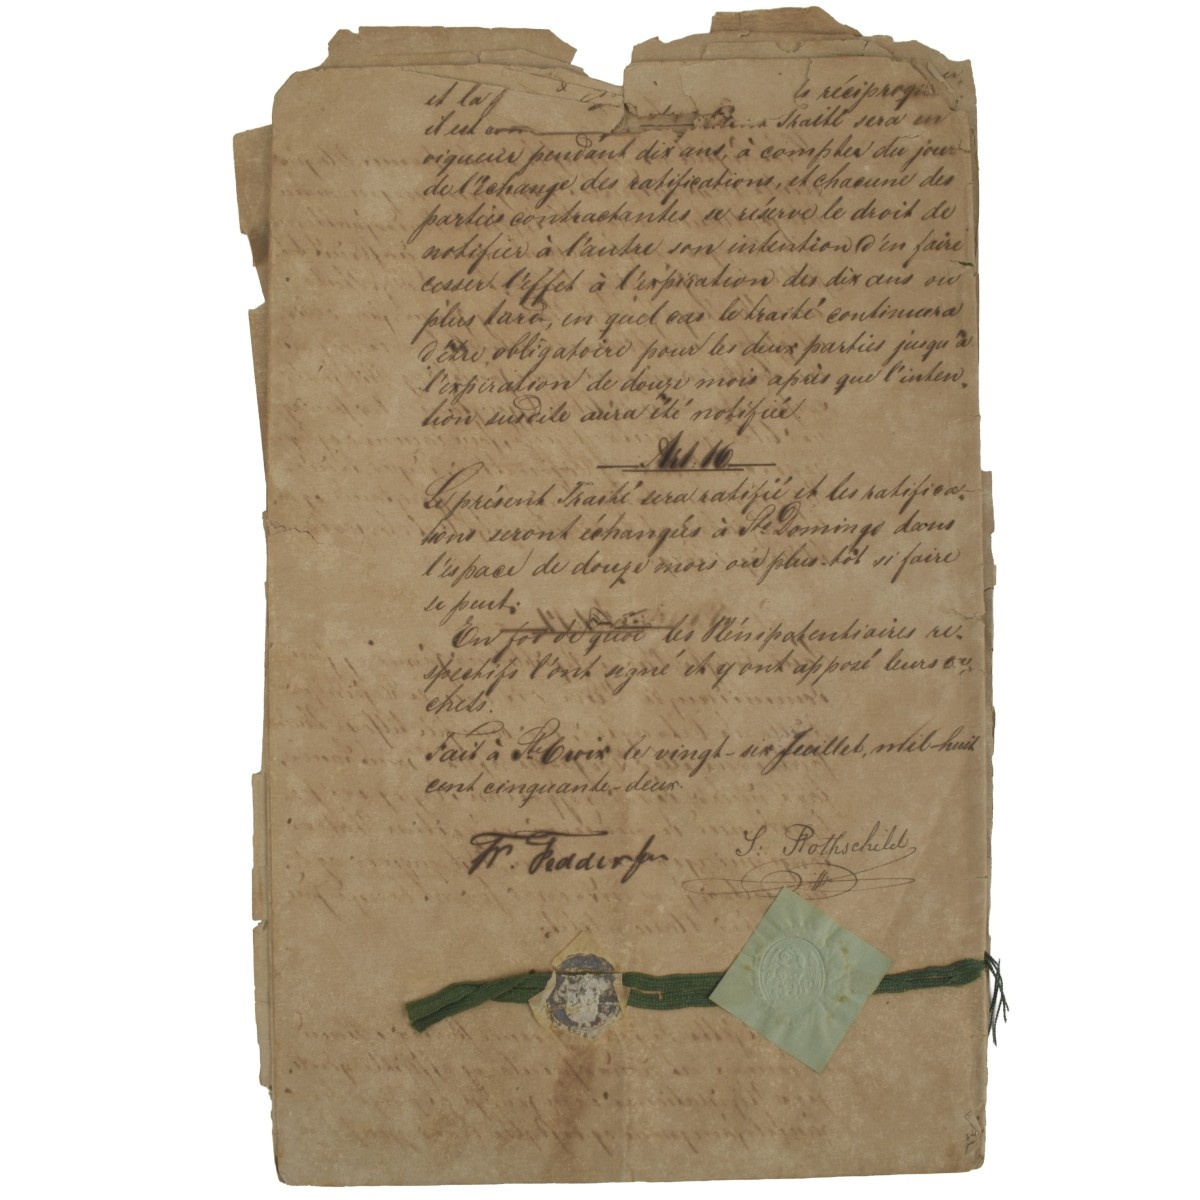 et la réciproq
il est Traité sera en
vigueur pendant dix ans, à compter du jour
de l'Echange des ratifications, et chacune des
parties contractantes se réserve le droit de
notifier à l'autre son intention d'en faire
cesser l'effet à l'expiration des dix ans ou
plus tard, en quel cas le traité continuera
d'être obligatoire pour les deux parties jusqu'à
l'expiration de douze mois après que l'inten-
tion susdite aura été notifiée.
Art. 16
Le présent Traité sera ratifié et les ratifica-
tions seront échangées à Sto Domingo dans
l'espace de douze mois ou plus-tôt si faire
se peut.
En foi de quoi les Plénipotentiaires re-
spectifs l'ont signé et y ont apposé leurs ca-
chets.
Fait à St Croix le vingt-six Juillet, mil-huit
cent cinquante-deux.
Fr. Feddersen S: Rothschild